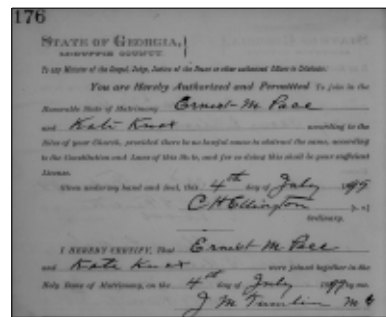 176
STATE OF GEORGIA,
McDUFFIE COUNTY.
To any Minister of the Gospel, Judge, Justice of the Peace or other authorized Officer to Celebrate:
You are Hereby Authorized and Permitted To join in the
Honorable State of Matrimony Ernest M. Pace
and Kate Knox according to the
Rites of your Church, provided there be no lawful cause to obstruct the same, according
to the Constitution and Laws of this State, and for so doing this shall be your sufficient
License.
Given under my hand and seal, this 4th day of July 1895
C. H. Ellington [L. S.]
Ordinary.
I HEREBY CERTIFY, That Ernest M. Pace
and Kate Knox were joined together in the
Holy State of Matrimony, on the 4th day of July by me.
J. M. M. G